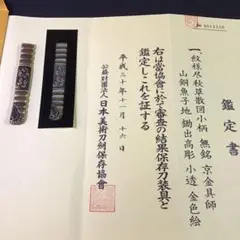 鑑定書
一、紋様尽秋草散図小柄 無銘 京金具師
山銅魚子地 鋤出高彫 小透 金色絵
右は當協會に於て審査の結果保存刀装具と
鑑定しこれを証する
平成三十年十一月十六日
公益財団法人日本美術刀剣保存協會